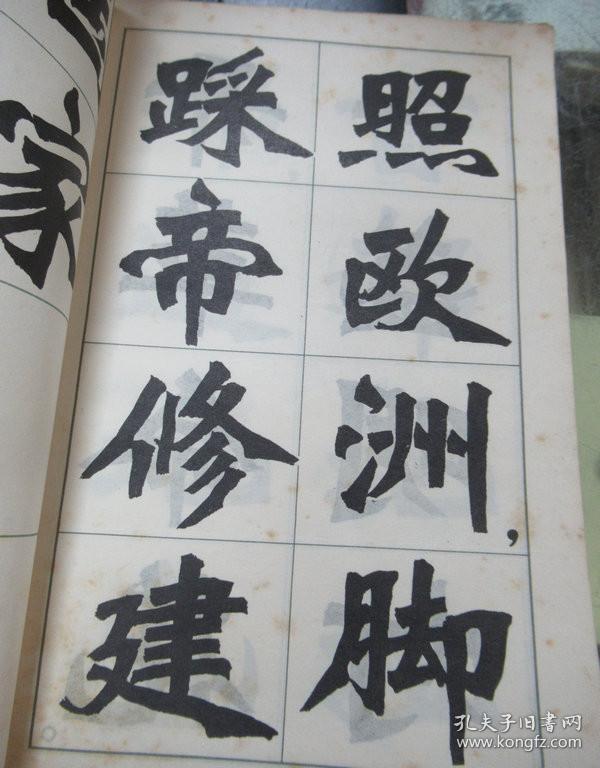 照欧洲，脚
踩帝修建
家
孔夫子旧书网
www.kongfz.com